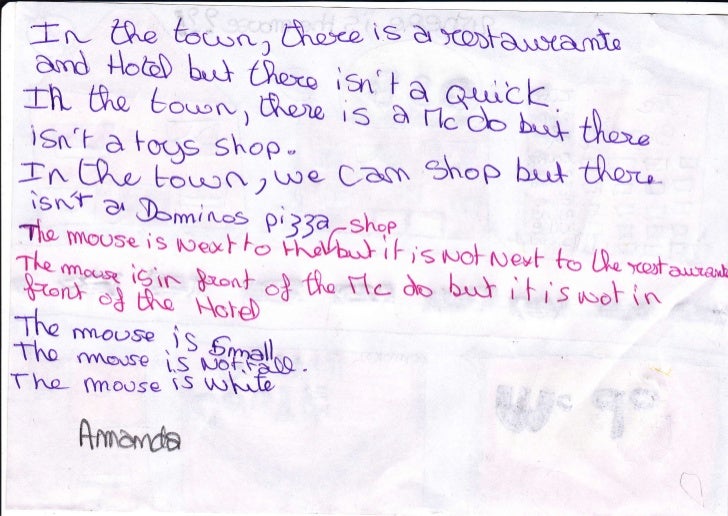 In the town, there is a restaurante
and Hotel but there isn't a Quick.
In the town, there is a Mc do but there
isn't a toys shop.
In the town, we can shop but there
isn't a Dominos pizza shop
The mouse is Next to but it is Not Next to the restaurante
The mouse is in front of the Mc do but it is not in
front of the Hotel
The mouse is small.
The mouse is Not tall.
The mouse is white
Amanda